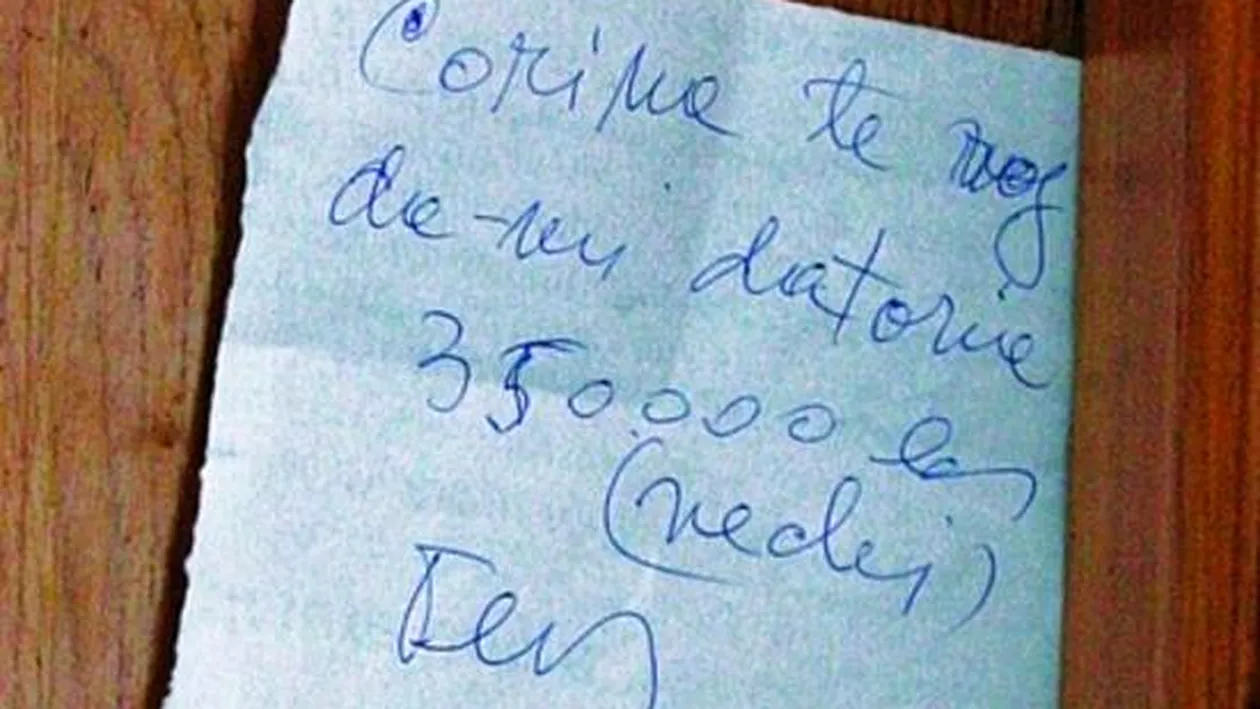 Corina te rog
da-mi datoria
350000 lei
(vechi)